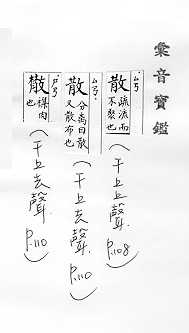 彙音寶鑑
散 疏流而不聚也
(干上上聲 P.108)
散 分离曰散又散布也
(干上去聲 P.110)
㪔 襍肉也
(干上去聲 P.110)